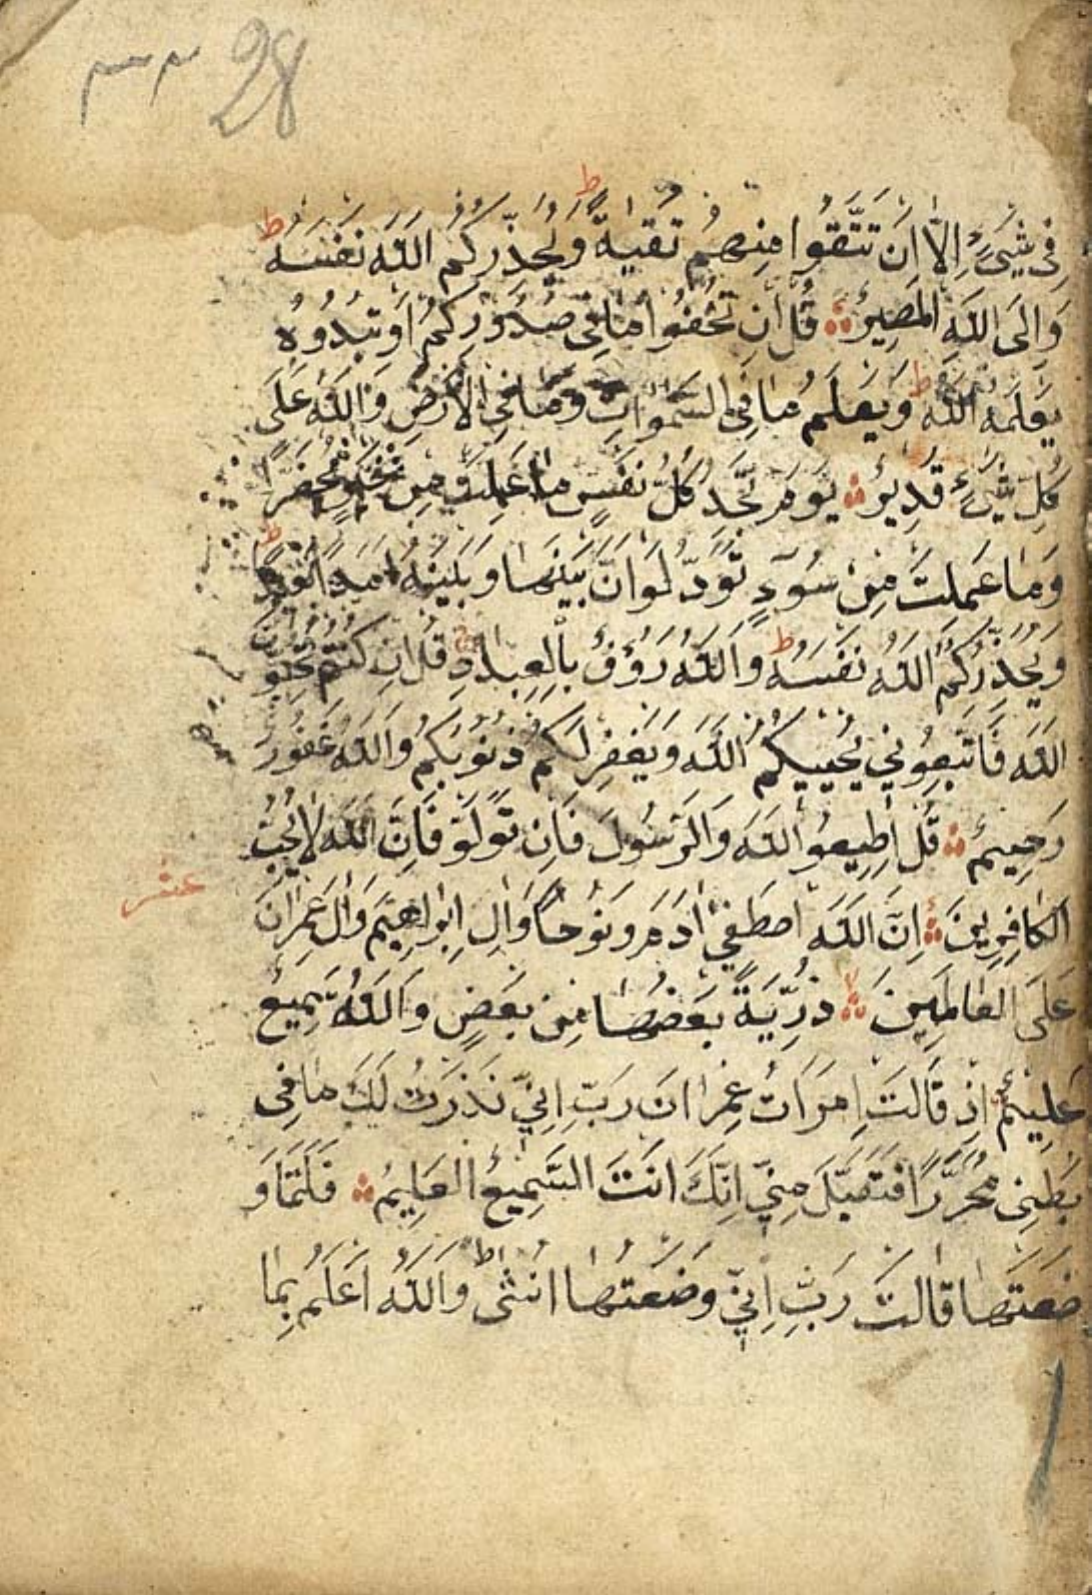 ٣٣ 28
فِى شَىْءٍ اِلَّا اَنْ تَتَّقُوا مِنْهُمْ تُقٰيةً ط وَيُحَذِّرُكُمُ اللّٰهُ نَفْسَهُ ط
وَاِلَى اللّٰهِ الْمَصِيرُ قُلْ اِنْ تُخْفُوا مَا فِى صُدُورِكُمْ اَوْ تُبْدُوهُ
يَعْلَمْهُ اللّٰهُ ط وَيَعْلَمُ مَا فِى السَّمٰوَاتِ وَمَا فِى الْاَرْضِ وَاللّٰهُ عَلٰى
كُلِّ شَىْءٍ قَدِيرٌ يَوْمَ تَجِدُ كُلُّ نَفْسٍ مَا عَمِلَتْ مِنْ خَيْرٍ مُحْضَرًا
وَمَا عَمِلَتْ مِنْ سُوٓءٍ تَوَدُّ لَوْ اَنَّ بَيْنَهَا وَبَيْنَهُ اَمَدًا بَعِيدًا ط
وَيُحَذِّرُكُمُ اللّٰهُ نَفْسَهُ ط وَاللّٰهُ رَؤُفٌ بِالْعِبَادِ قُلْ اِنْ كُنْتُمْ تُحِبُّونَ
اللّٰهَ فَاتَّبِعُونِى يُحْبِبْكُمُ اللّٰهُ وَيَغْفِرْ لَكُمْ ذُنُوبَكُمْ وَاللّٰهُ غَفُورٌ
رَحِيمٌ قُلْ اَطِيعُوا اللّٰهَ وَالرَّسُولَ فَاِنْ تَوَلَّوْ فَاِنَّ اللّٰهَ لَا يُحِبُّ
عشر
الْكَافِرِينَ اِنَّ اللّٰهَ اصْطَفٰى اٰدَمَ وَنُوحًا وَاٰلَ اِبْرَاهِيمَ وَاٰلَ عِمْرَانَ
عَلَى الْعَالَمِينَ لا ذُرِّيَّةً بَعْضُهَا مِنْ بَعْضٍ وَاللّٰهُ سَمِيعٌ
عَلِيمٌ اِذْ قَالَتِ امْرَاَتُ عِمْرَانَ رَبِّ اِنِّى نَذَرْتُ لَكَ مَا فِى
بَطْنِى مُحَرَّرًا فَتَقَبَّلْ مِنِّى اِنَّكَ اَنْتَ السَّمِيعُ الْعَلِيمُ فَلَمَّا وَ
ضَعَتْهَا قَالَتْ رَبِّ اِنِّى وَضَعْتُهَا اُنْثٰى ط وَاللّٰهُ اَعْلَمُ بِمَا